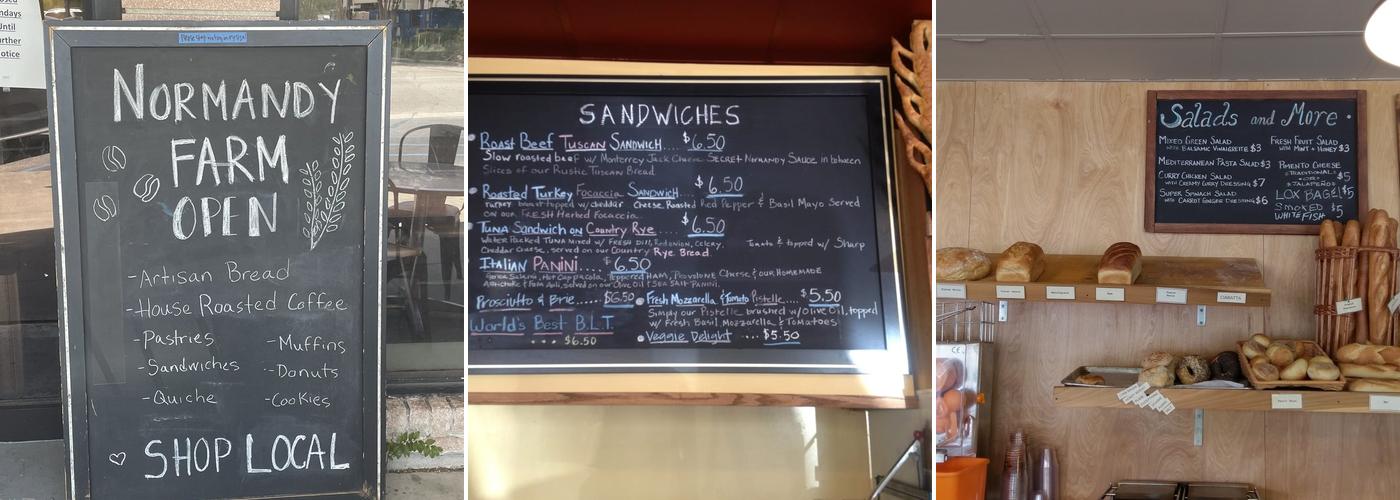 osed
ndays
Until
urther
otice
NORMANDY
FARM
OPEN
-Artisan Bread
-House Roasted Coffee
-Pastries
-Muffins
-Sandwiches
-Donuts
-Quiche
-Cookies
SHOP LOCAL
SANDWICHES
Roast Beef Tuscan Sandwich.... $6.50
Slow roasted beef w/ Monterrey Jack Cheese Secret Normandy Sauce, in between
Slices of our Rustic Tuscan Bread
Roasted Turkey Focaccia Sandwich... $6.50
Turkey breast topped w/cheddar Cheese, Roasted Red Pepper & Basil Mayo Served
on our FRESH Herbed Focaccia
Tuna Sandwich on Country Rye.... $6.50
Water Packed Tuna mixed w/ Fresh Dill, Red onion, Celery, Tomato & topped w/ Sharp
Cheddar Cheese, served on our Country Rye Bread.
Italian Panini.... $6.50
Genoa Salami, Hot Cappacola, Peppered Ham, Provolone Cheese & our Homemade
Artichoke & Farm Aoli, served on our Olive Oil & Sea Salt Panini.
Prosciutto & Brie...... $6.50
Fresh Mozzarella & Tomato Pistelle.... $5.50
Simply our Pistelle brushed w/Olive Oil, topped
w/ Fresh Basil, Mozzarella & Tomatoes
World's Best B.L.T.
... $6.50
Veggie Delight .... $5.50
Salads and More
Mixed Green Salad
with Balsamic Vinaigrette $3
Mediterranean Pasta Salad $3
Curry Chicken Salad
with Creamy Curry Dressing $7
Super Spinach Salad
with Carrot Ginger Dressing $6
Fresh Fruit Salad
with Mint & Honey $3
Pimento Cheese
*Traditional*
-or-
*Jalapeño*
$5
LOX BAGEL $5
Smoked
Whitefish $5
CIABATTA